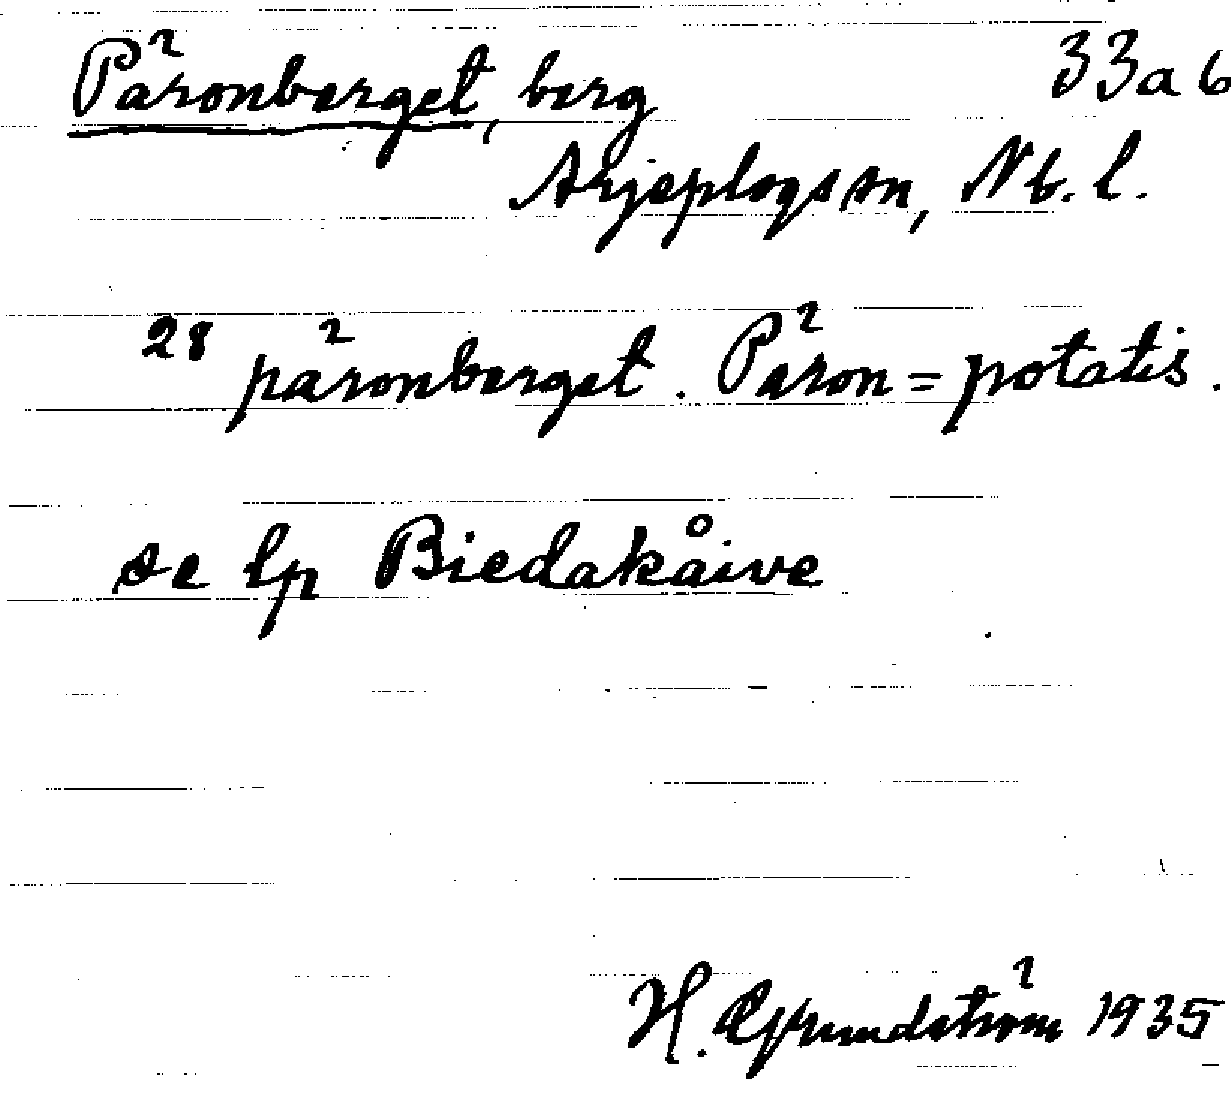 Päronberget, berg 33a6
Arjeplogs sn, Nb. l.
28 päronberget. Päron = potatis.
se lp Biedakåive
H. Grundström 1935